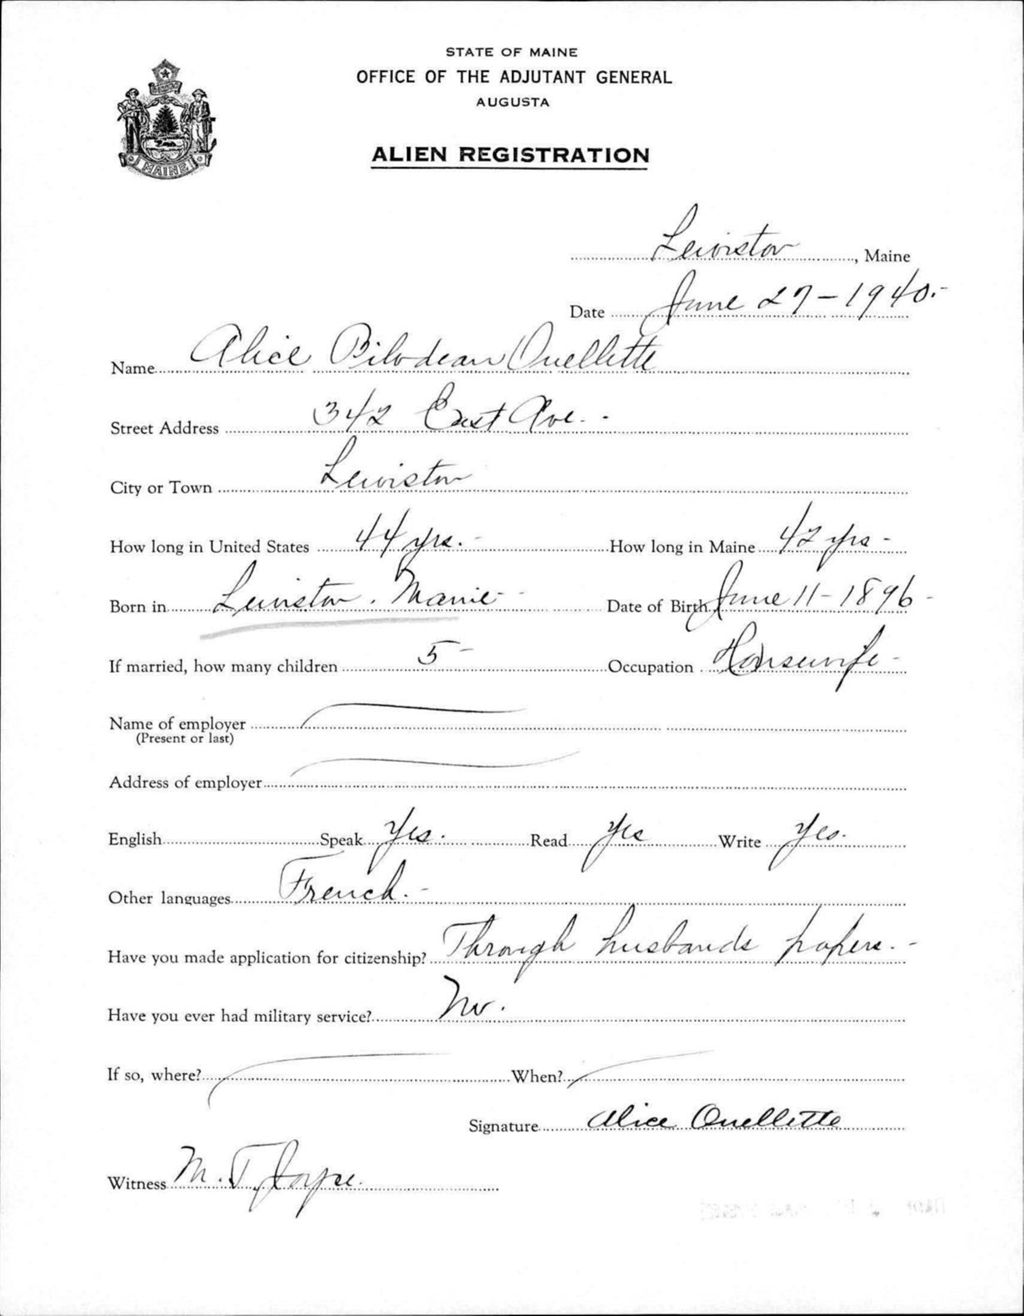 STATE OF MAINE
OFFICE OF THE ADJUTANT GENERAL
AUGUSTA
ALIEN REGISTRATION
MAINE
Lewiston, Maine
Date June 27-1940.-
Name Alice Bilodeau Ouellette
Street Address 342 East Ave. -
City or Town Lewiston
How long in United States 44 yrs. - How long in Maine 42 yrs -
Born in Lewiston. Maine - Date of Birth June 11-1896 -
If married, how many children 5 - Occupation Housewife -
Name of employer
(Present or last)
Address of employer
English Speak Yes. Read Yes Write Yes.
Other languages French. -
Have you made application for citizenship? Through husbands papers. -
Have you ever had military service? No.
If so, where? When?
Signature Alice Ouellette
Witness M. T. Joyce